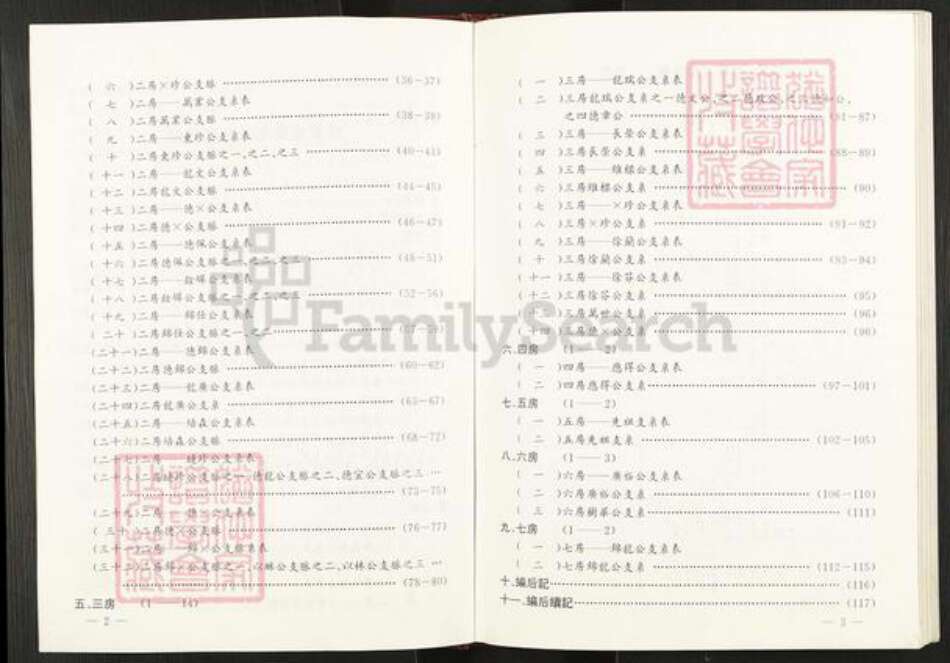 ( 六 )二房×珍公支脈 (36-37)
( 七 )二房——萬業公支系表
( 八 )二房萬業公支脈 (38-39)
( 九 )二房——東珍公支系表
( 十 )二房東珍公支脈之一、之二、之三 (40-43)
(十一)二房——龍文公支系表
(十二)二房龍文公支脈 (44-45)
(十三)二房——德×公支系表
(十四)二房德×公支脈 (46-47)
(十五)二房——德佩公支系表
(十六)二房德佩公支脈之一、之二、之三 (48-51)
(十七)二房 公支系表
(十八)二房 公支脈之一、之二、之三 (52-56)
(十九)二房——錦任公支系表
(二十)二房錦任公支脈之一、之二
(二十一)二房——德錦公支系表
(二十二)二房德錦公支脈 (60-62)
(二十三)二房——龍廣公支系表
(二十四)二房龍廣公支系 (63-67)
(二十五)二房——培森公支系表
(二十六)二房培森公支脈 (68-72)
(二十七)二房 公支系表
(二十八)二房 公支脈之一、德龍公支脈之二、德宜公支脈之三
(73-75)
(二十九)二房——德×公支系表
(三十)二房德×公支脈 (76-77)
(三十一)二房——錦×公支脈系表
(三十二)二房錦×公支脈之一、以 公支脈之二、以林公支脈之三
(78-80)
五.三房 (1——14)
— 2 —
( 一 )三房——龍瑞公支系表
( 二 )三房龍瑞公支系之一德文公、之二德政公、之三德 公、
之四德章公 (81-87)
( 三 )三房——長榮公支系表
( 四 )三房長榮公支系 (88-89)
( 五 )三房——維標公支系表
( 六 )三房維標公支系 (90)
( 七 )三房——×珍公支系表
( 八 )三房×珍公支系 (91-92)
( 九 )三房——徐蘭公支系表
( 十 )三房徐蘭公支系 (93-94)
(十一)三房——徐容公支系表
(十二)三房徐容公支系 (95)
(十三)三房萬世公支系 (96)
(十四)三房德×公支系 (96)
六.四房 (1——2)
( 一 )四房——應得公支系表
( 二 )四房應得公支系 (97-101)
七.五房 (1——2)
( 一 )五房——先祖支系表
( 二 )五房先祖支系 (102-105)
八.六房 (1——3)
( 一 )六房——廣裕公支系表
( 二 )六房廣裕公支系 (106-110)
( 三 )六房樹華公支系 (111)
九.七房 (1——2)
( 一 )七房——錦龍公支系表
( 二 )七房錦龍公支系 (112-115)
十.編后記 (116)
十一.編后續記 (117)
— 3 —
FamilySearch